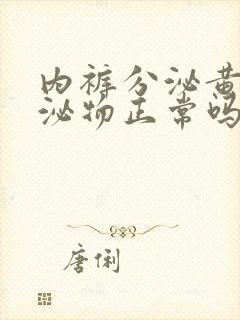 内裤分泌黄
泌物正常吗
唐俐